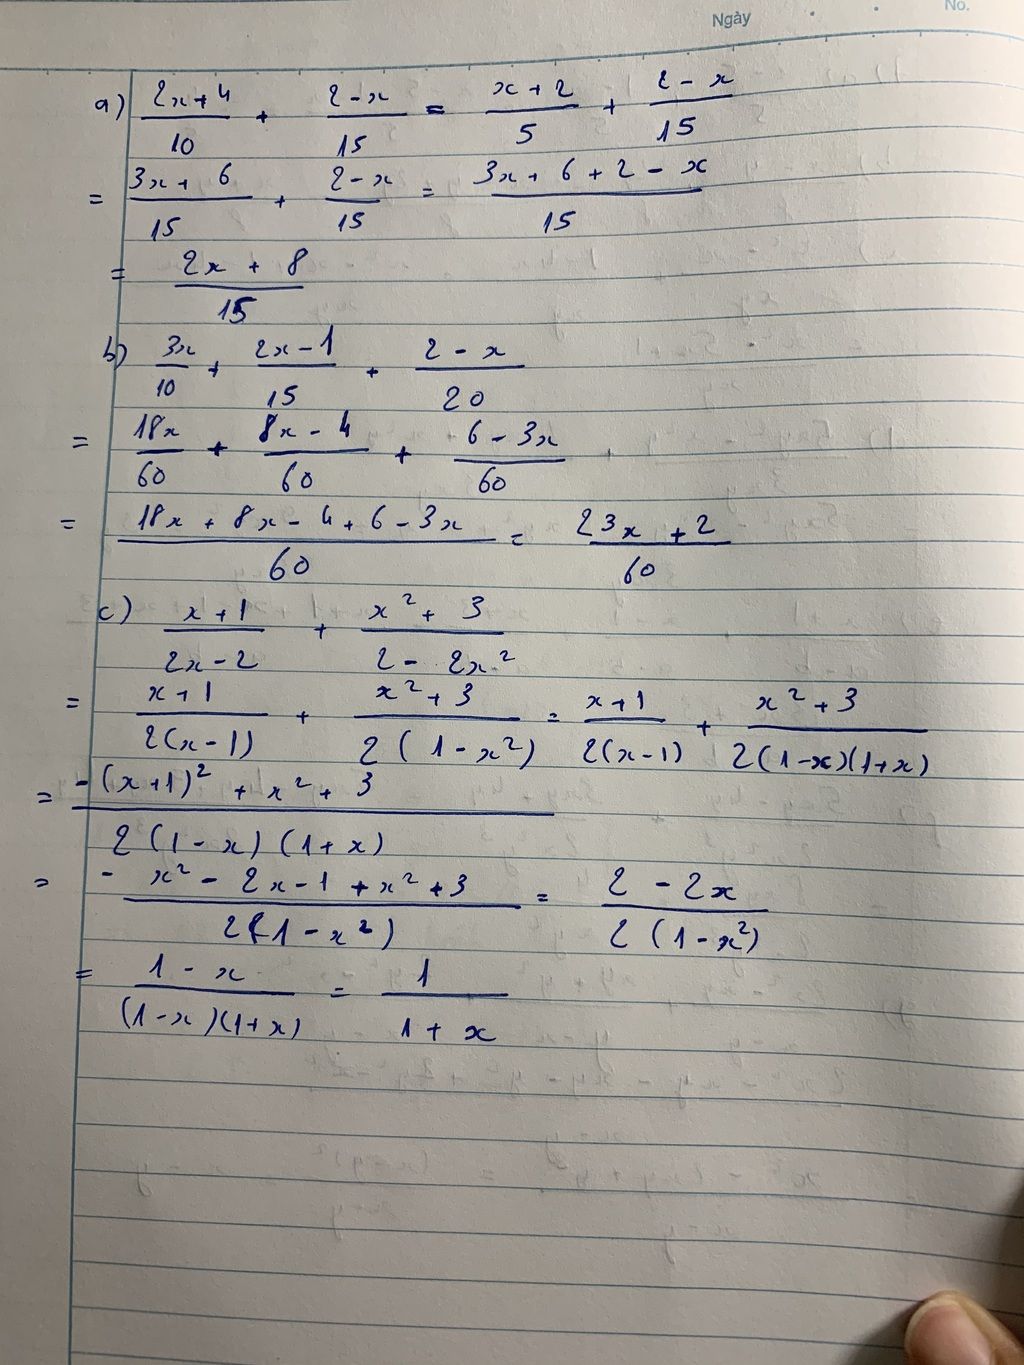 Ngày
No.
a) (2x+4)/10 + (2-x)/15 = (x+2)/5 + (2-x)/15
= (3x+6)/15 + (2-x)/15 = (3x+6+2-x)/15
= (2x+8)/15
b) 3x/10 + (2x-1)/15 + (2-x)/20
= 18x/60 + (8x-4)/60 + (6-3x)/60
= (18x+8x-4+6-3x)/60 = (23x+2)/60
c) (x+1)/(2x-2) + (x²+3)/(2-2x²)
= (x+1)/(2(x-1)) + (x²+3)/(2(1-x²)) = (x+1)/(2(x-1)) + (x²+3)/(2(1-x)(1+x))
= (-(x+1)²+x²+3)/(2(1-x)(1+x))
= (-x²-2x-1+x²+3)/(2(1-x²)) = (2-2x)/(2(1-x²))
= (1-x)/((1-x)(1+x)) = 1/(1+x)